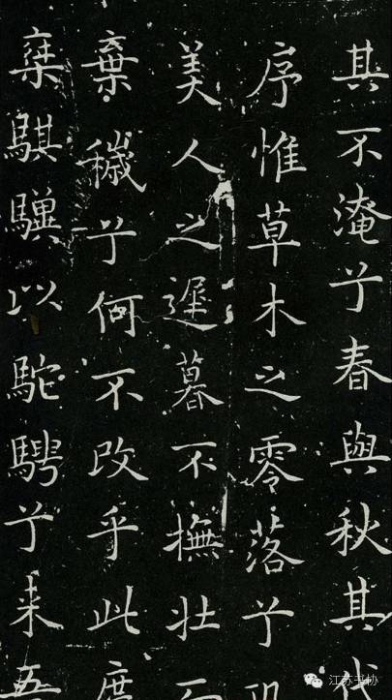 其不淹兮春與秋其代
序惟草木之零落兮恐
美人之遲暮不撫壯而
棄穢兮何不改乎此度
椉騏驥以駝騁兮来吾
江苏书协